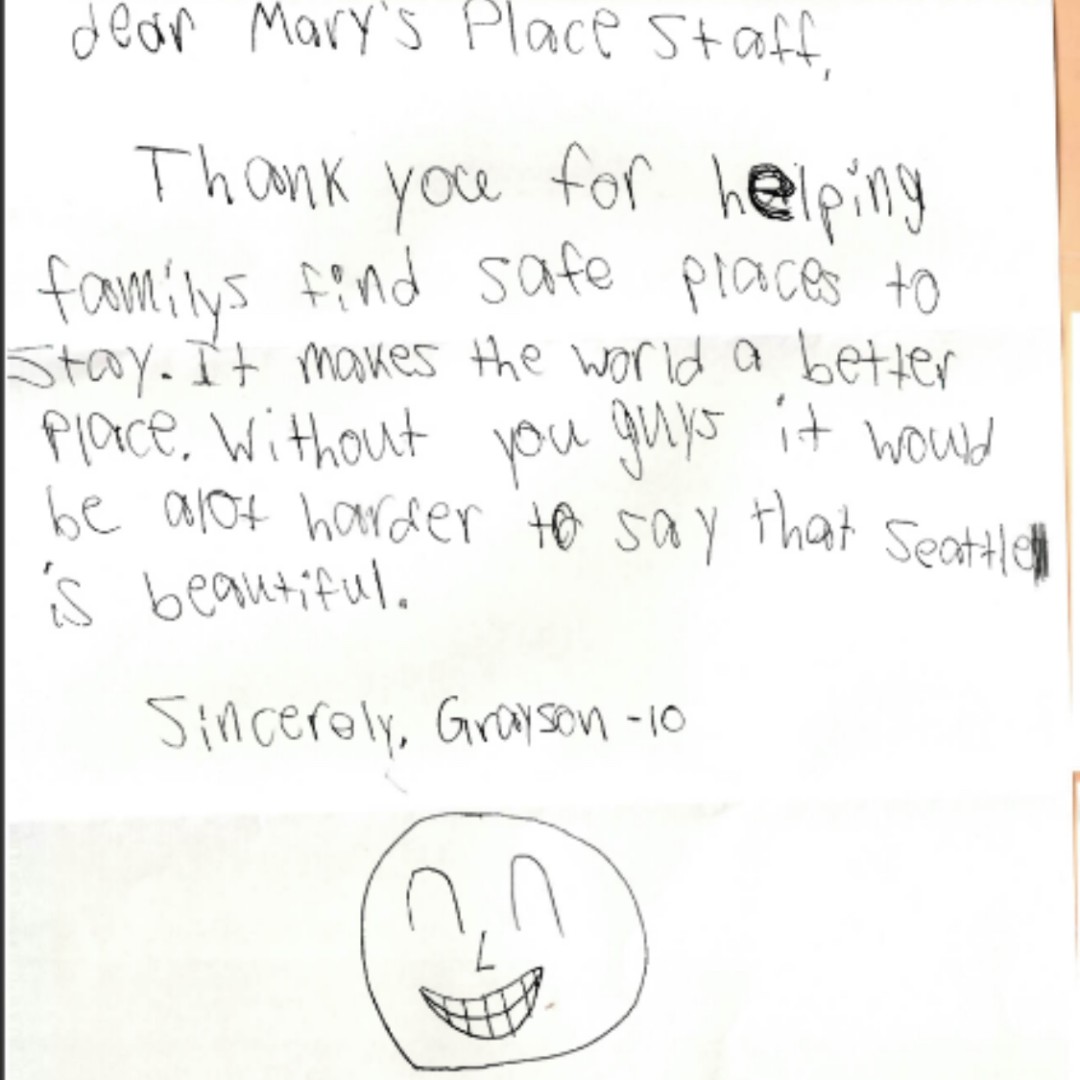 dear Mary's Place Staff,
Thank you for helping
familys find safe places to
Stay. It makes the world a better
Place. Without you guys it would
be alot harder to say that Seattle
is beautiful.
Sincerely, Grayson -10